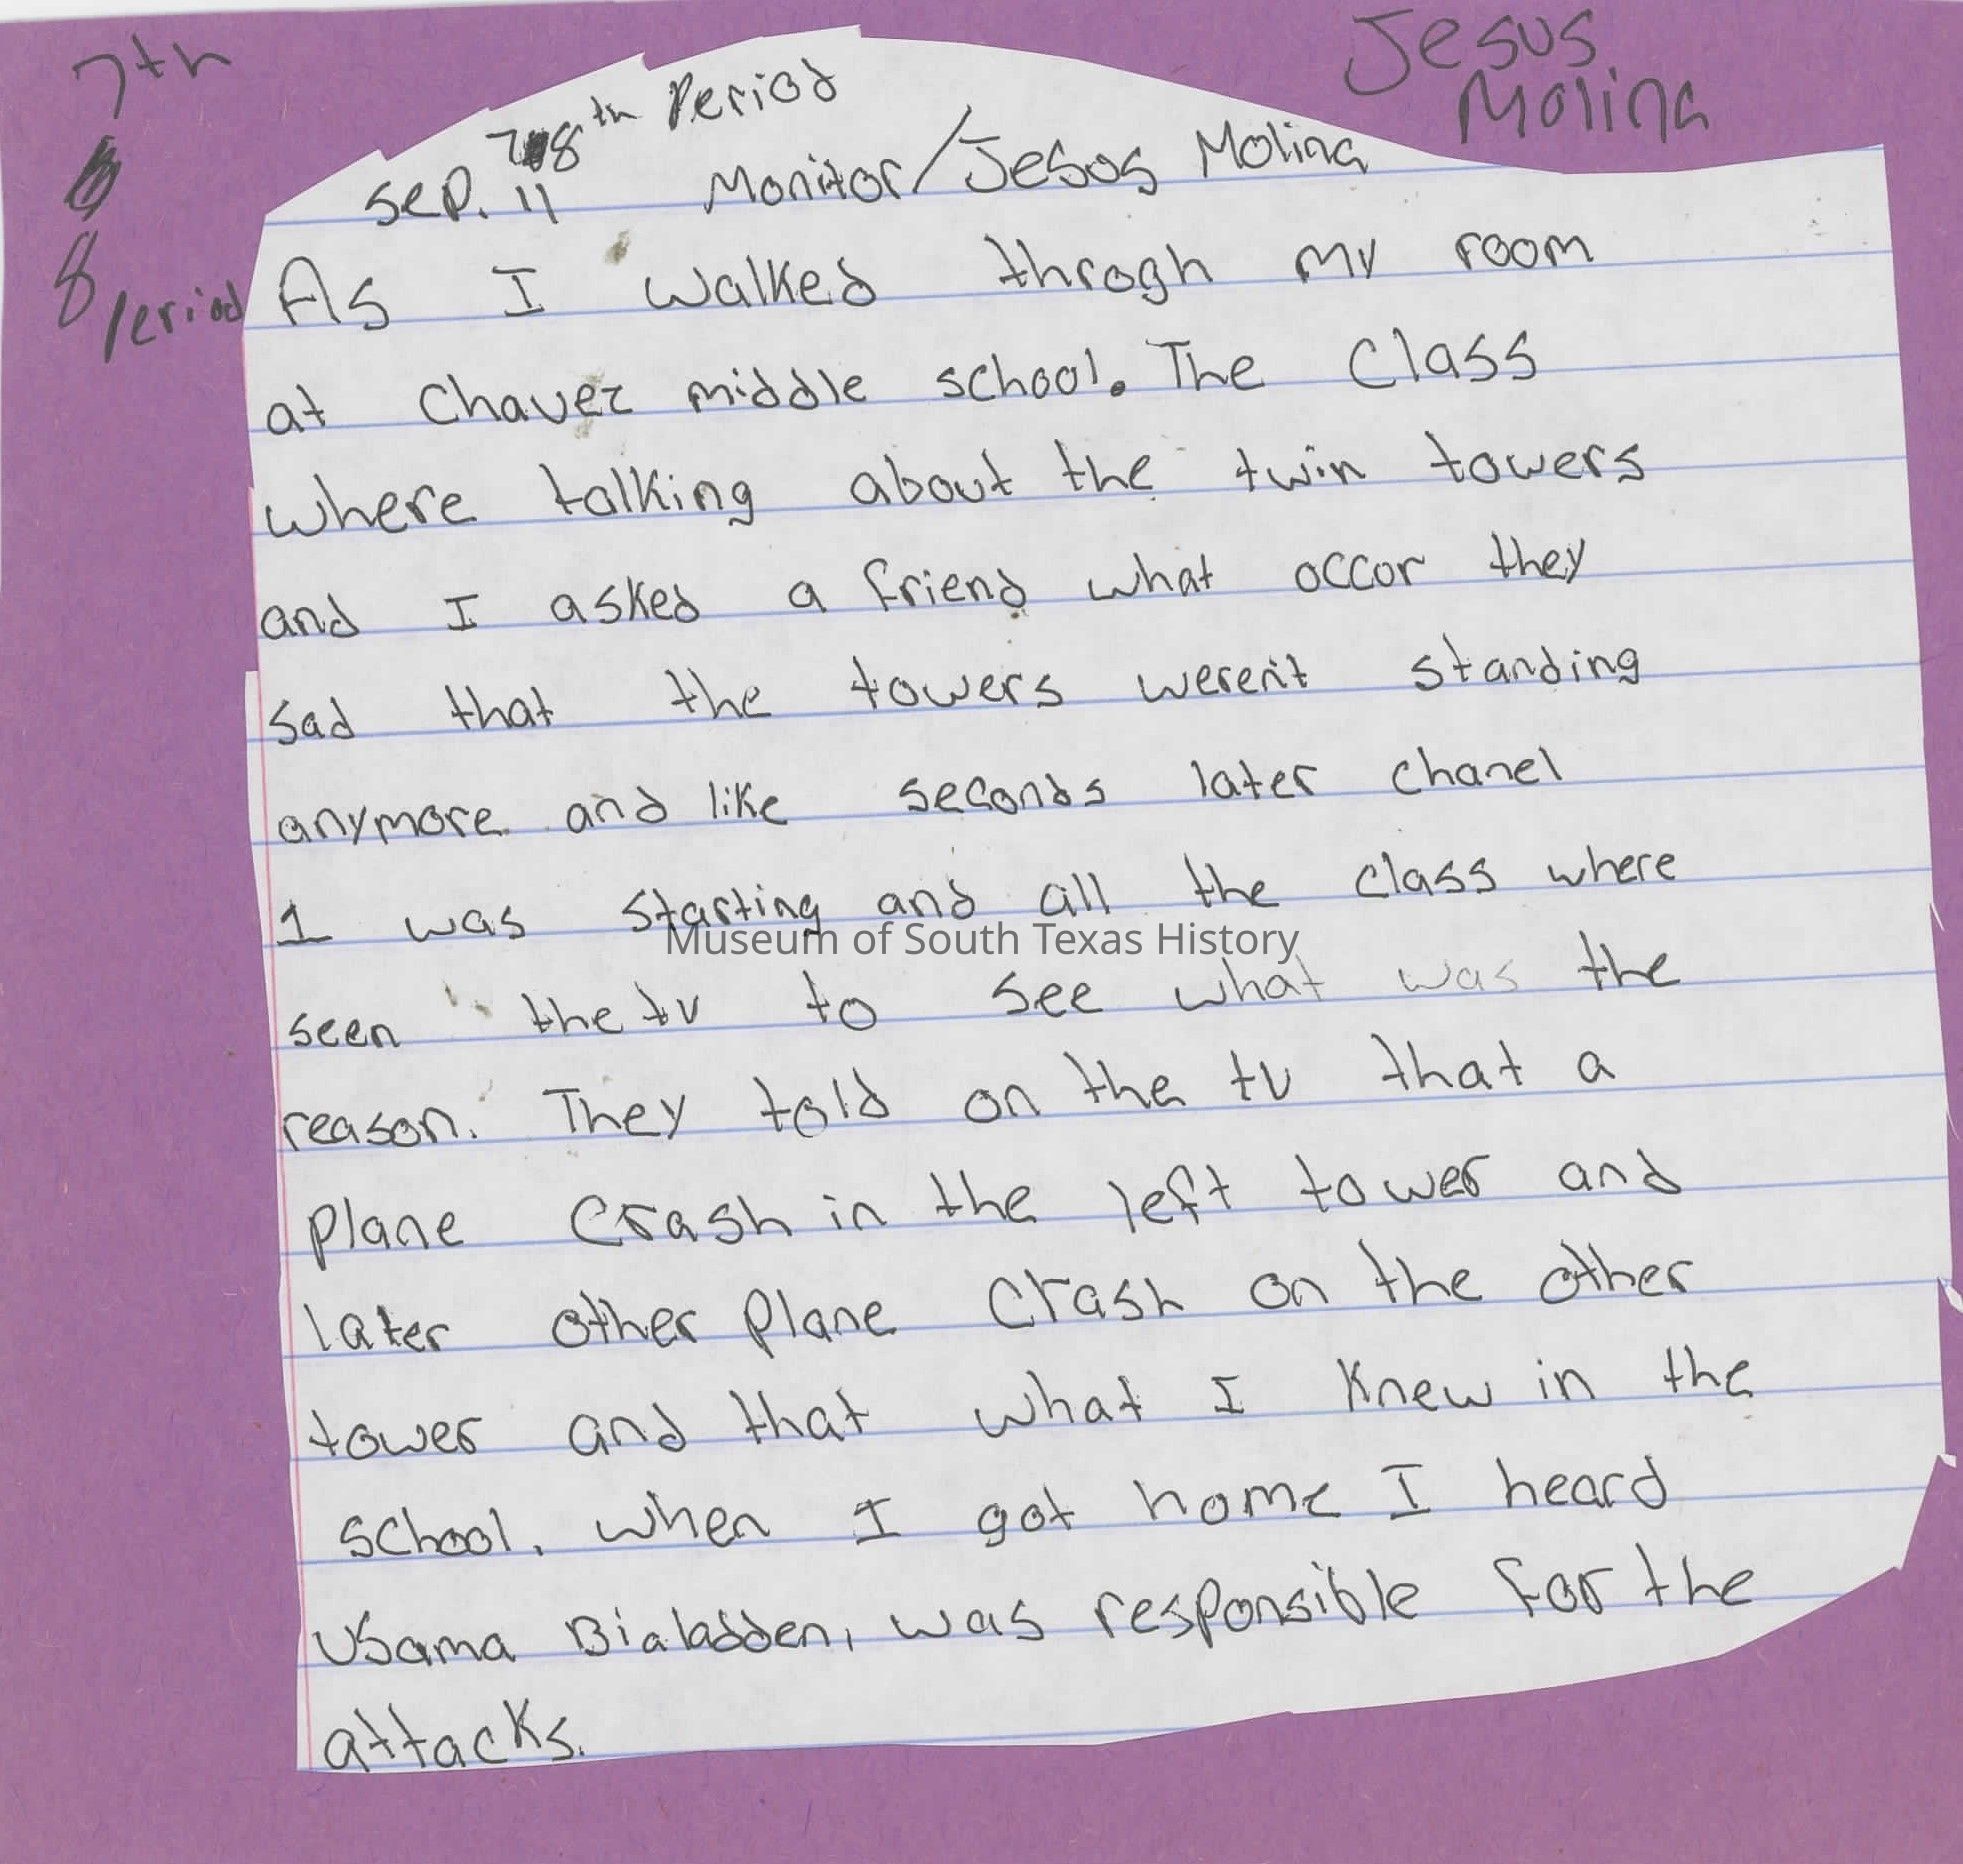 7th
Jesus
Molina
8
Period
78th Period
Sep. 11 Monitor/Jesus Molina
As I walked throgh my room
at Chavez middle school. The Class
where talking about the twin towers
and I asked a friend what occor they
sad that the towers weren't standing
anymore and like seconds later chanel
1 was starting and all the class where
Museum of South Texas History
seen the tv to see what was the
reason. They told on the tv that a
plane crash in the left tower and
later other plane crash on the other
tower and that what I knew in the
school. when I got home I heard
Usama Bialadden, was responsible for the
attacks.